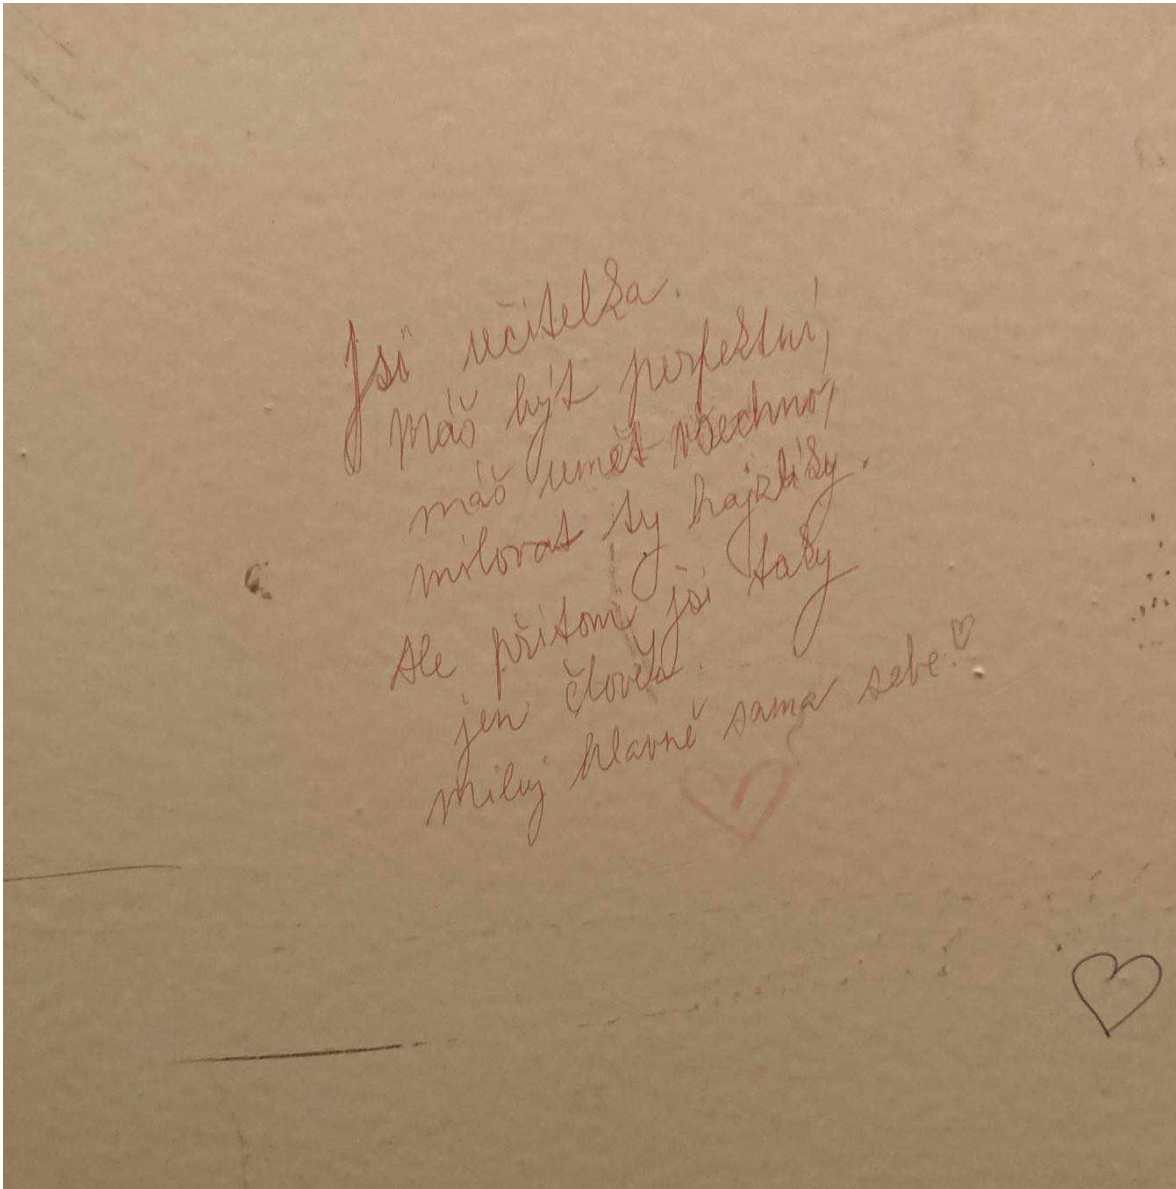 Jsi učitelka.
máš být perfektní,
máš umět všechno,
milovat ty hajzlíky.
Ale přitom jsi taky
jen člověk.
miluj hlavně sama sebe!